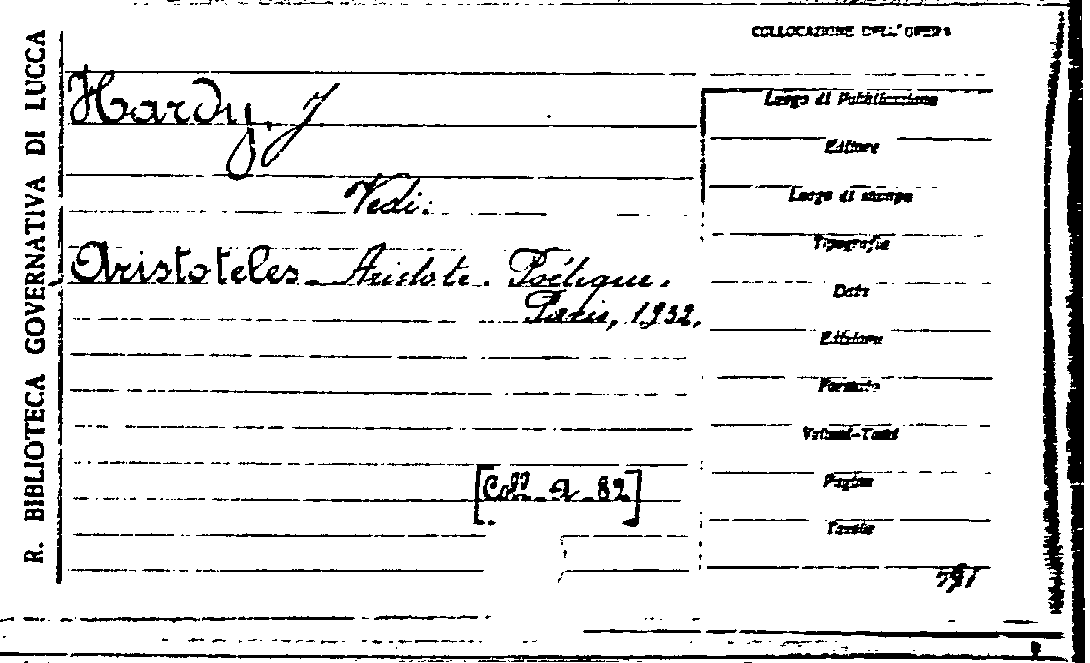 R. BIBLIOTECA GOVERNATIVA DI LUCCA
COLLOCAZIONE DELL'OPERA
Hardy, J
Vedi:
Aristoteles - Aristote. Poétique.
Paris, 1932.
[Coll. A. 82]
Luogo di Pubblicazione
Editore
Luogo di stampa
Tipografia
Data
Edizione
Formato
Volumi-Tomi
Pagine
Tavole